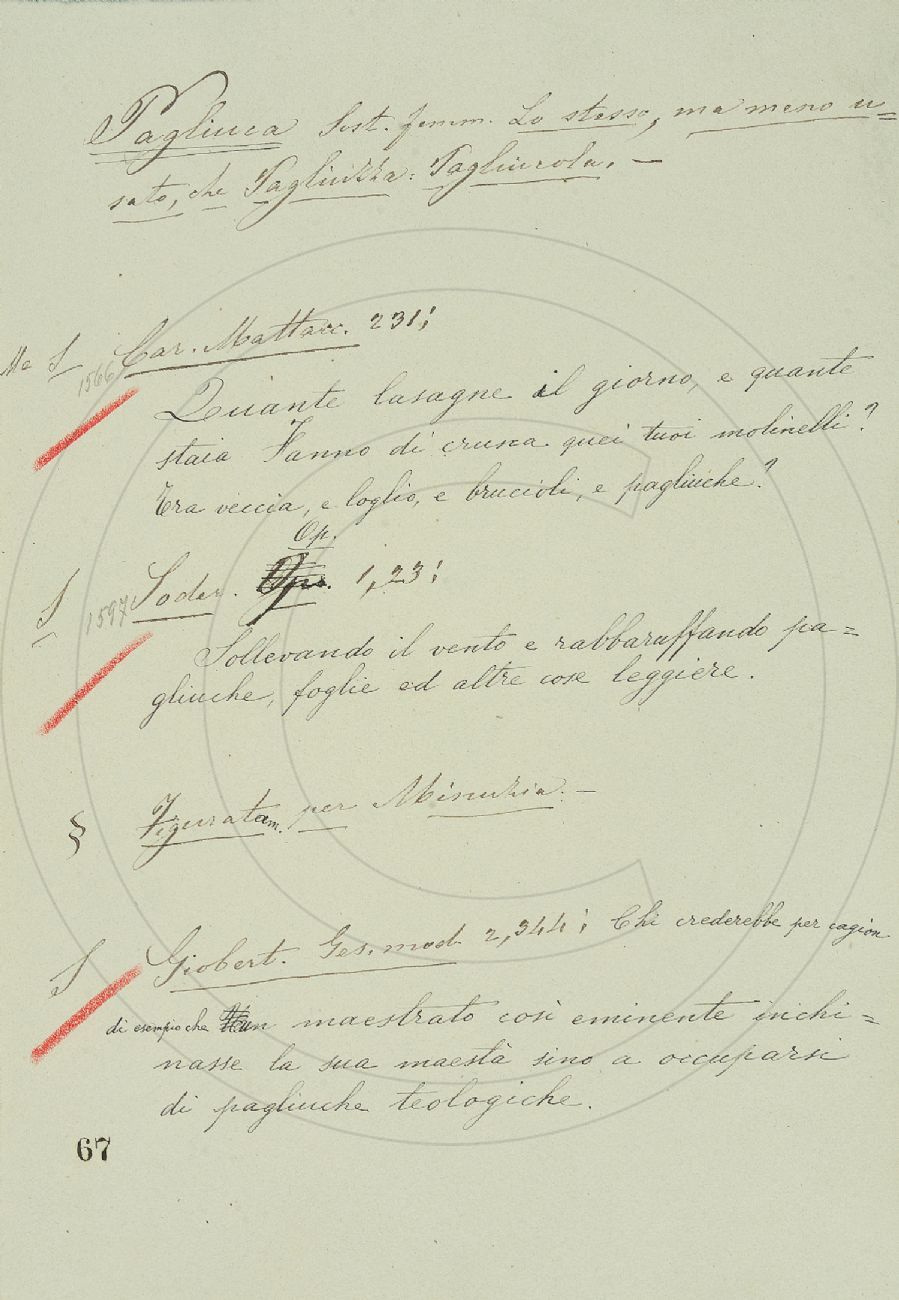 Pagliuca Sost. femm. Lo stesso, ma meno u=
sato, che Pagliuzza: Pagliucola. —
S 1566 Car. Mattacc. 231;
Quante lasagne il giorno, e quante
staia Fanno di crusca quei tuoi molinelli?
Era veccia, e loglio, e bruccioli, e pagliuche?
Op.
S 1597 Soder. 1,23;
Sollevando il vento e rabbaruffando pa=
gliuche, foglie ed altre cose leggiere.
§ Figuratam. per Minuzia. —
S Giobert. Ges. mod. 2,344; Chi crederebbe per cagion
di esempio che un maestrato così eminente inchi=
nasse la sua maestà sino a occuparsi
di pagliuche teologiche.
67